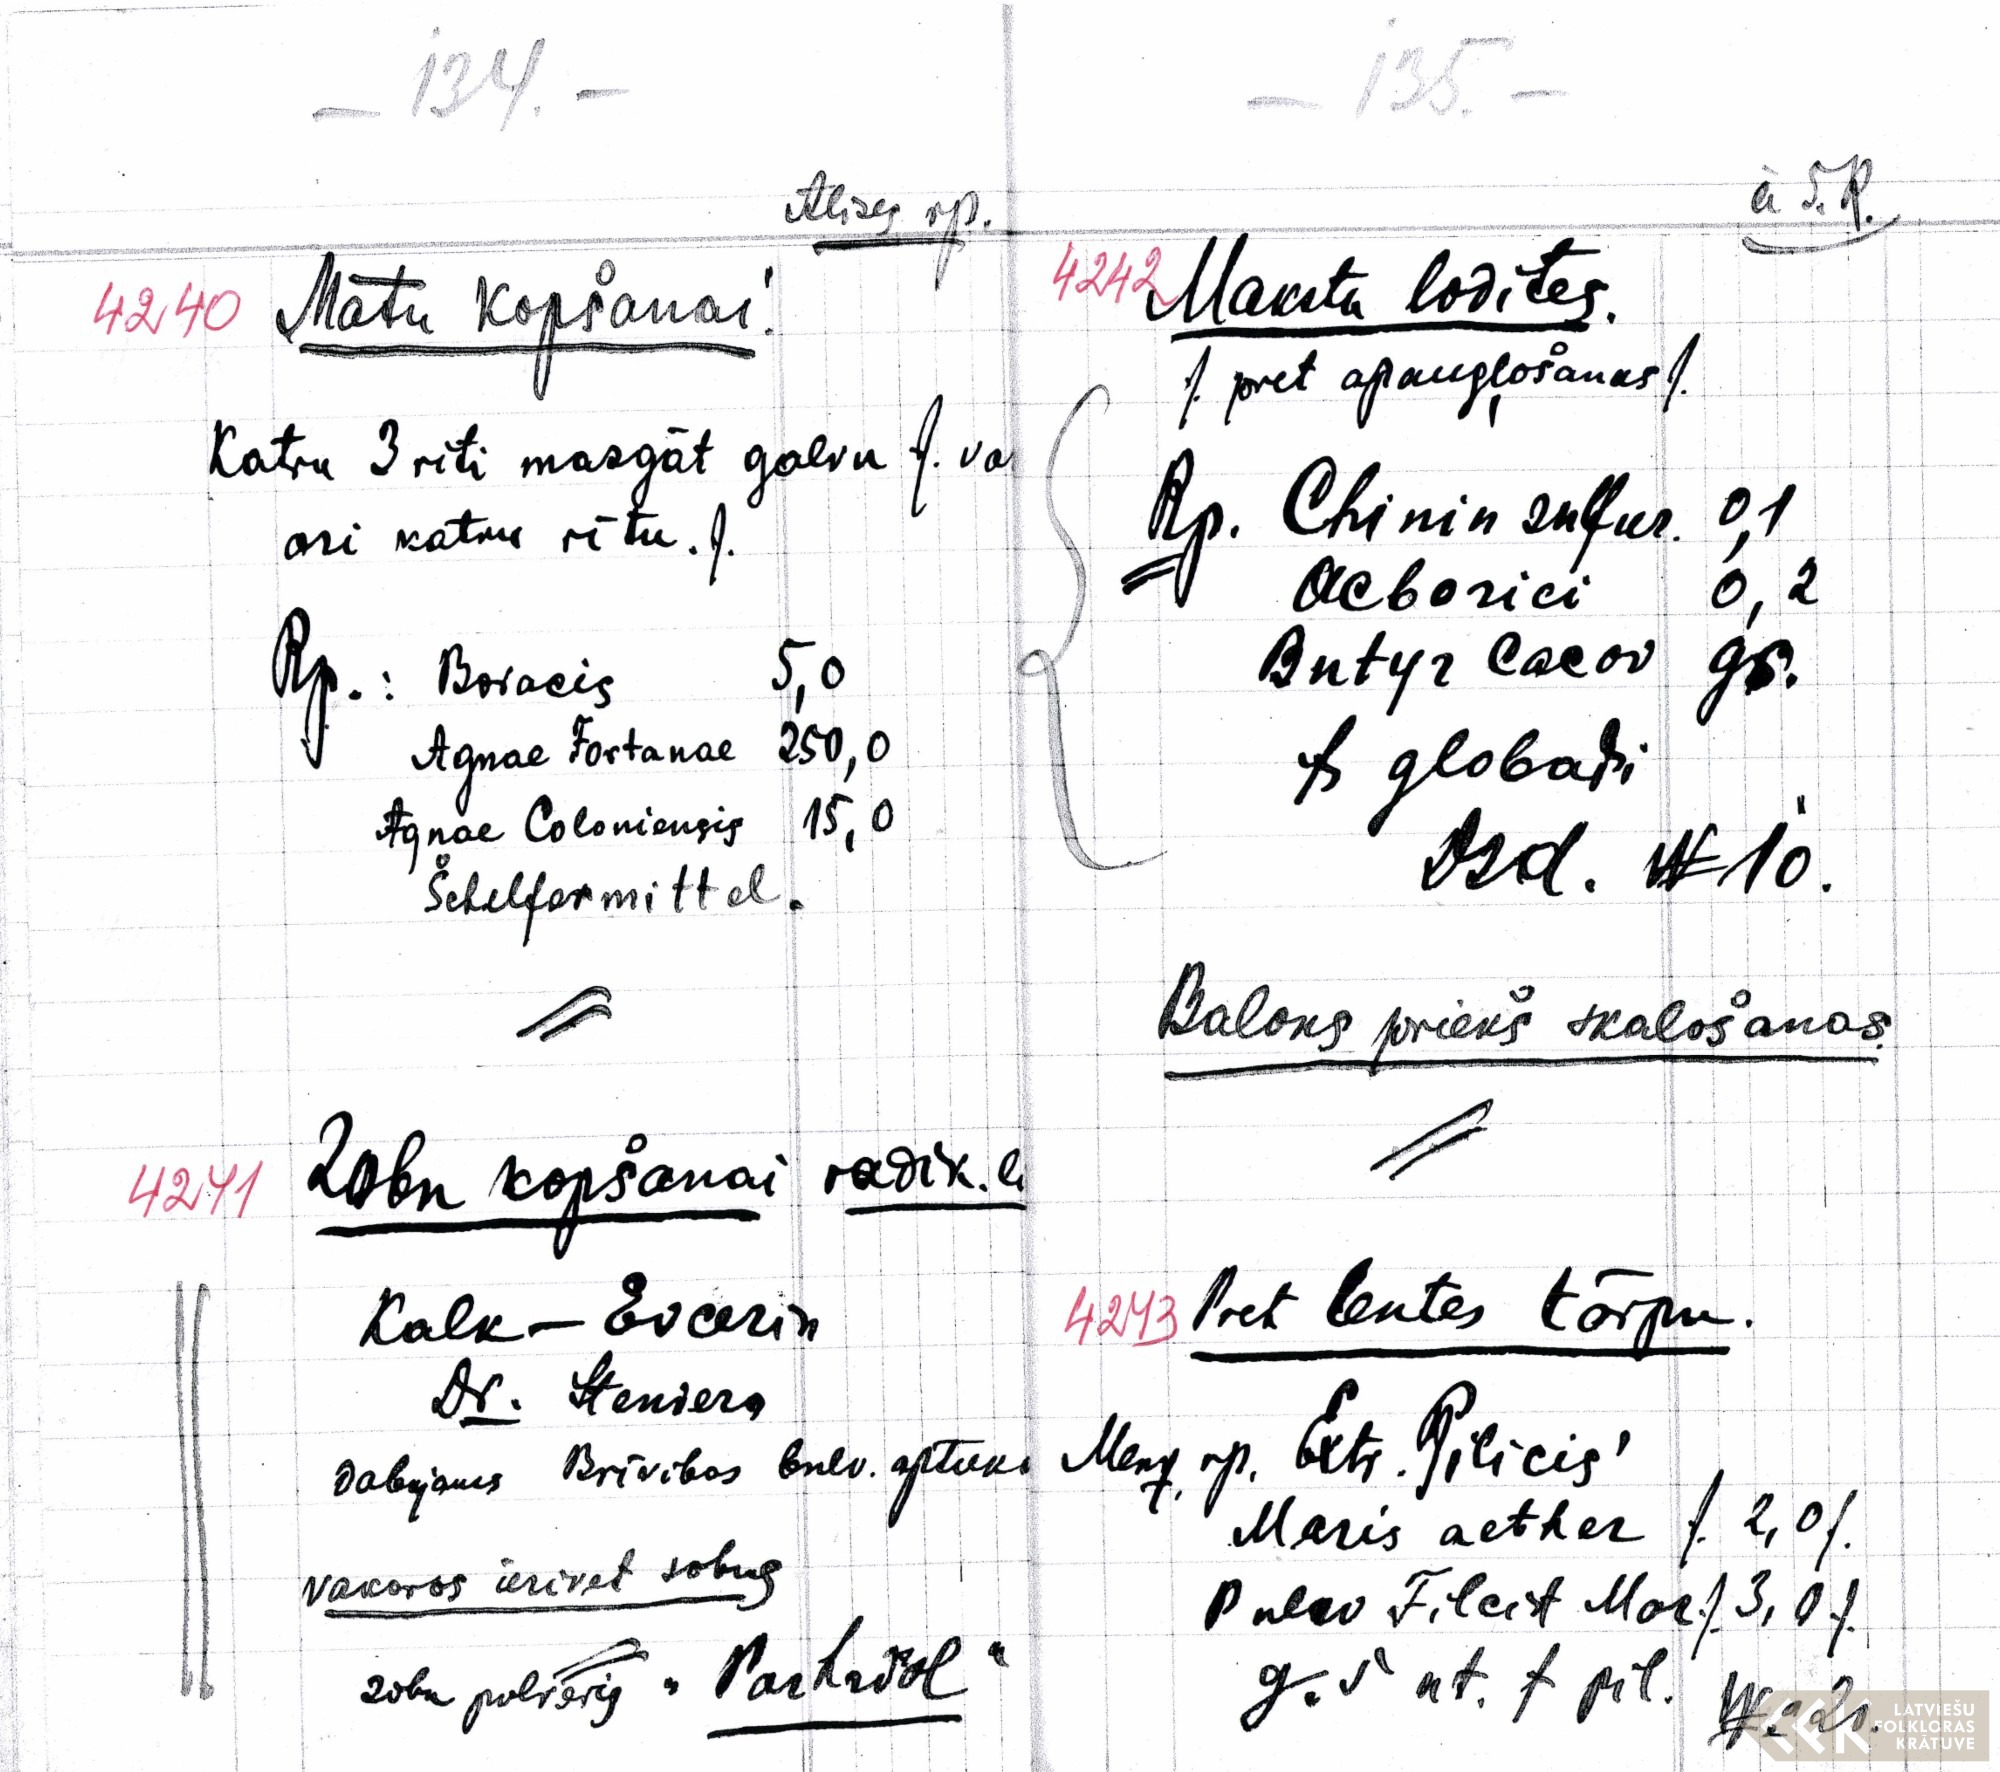 - 134. -
Alises rp.
4240 Matu kopšanai!
Katru 3 rīti mazgāt galvu /. va
ari katru rītu. /.
Rp.: Boracis 5,0
Aqnae Fortanae 250,0
Aqnae Coloniensis 15,0
Šchelfermittel.
4241 Zobu kopšanai radik.
Kalk - Eucerin
Dr. Stendera
dabūjams Brīvības bulv. aptiek
vakaros ierivet sobus
zobu pulveris "Parhidol"
- 135. -
4242 Maksta lodītes.
/. pret apaugļošanas /.
Rp. Chinin sulfur. 0,1
Acborici 0,2
Butyr Cacov gs.
globuli
Dsd. № 10.
Balons priekš skalošanas.
4243 Pret lentes tārpu.
rp. Extr. Filicis
Maris aether /. 2,0 /.
Pulev Filcist Mar /. 3,0 /.
pil. № 20.
LATVIEŠU
FOLKLORAS
KRĀTUVE